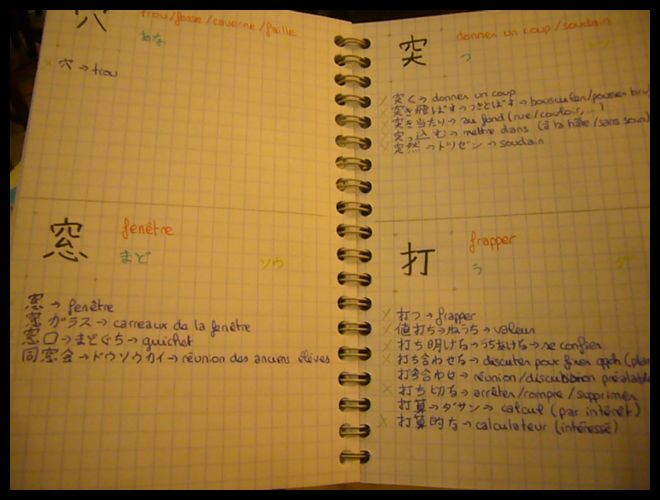 穴
trou/fosse/caverne/faille
あな
穴→trou
窓
fenêtre
まど
ソウ
窓→fenêtre
窓ガラス→carreaux de la fenêtre
窓口→まどぐち→guichet
同窓会→ドウソウカイ→réunion des anciens élèves
突
donner un coup/soudain
つ
突く→donner un coup
突き飛ばす→つきとばす→bousculer/pousser
突き当たり→au fond (rue/couloir,...)
突っ込む→mettre dans (à la hâte/sans soin)
突然→トツゼン→soudain
打
frapper
う
打つ→frapper
値打ち→ねうち→valeur
打ち明ける→うちあける→se confier
打ち合わせる→discuter pour fixer
打ち合わせ→réunion/discussion préalable
打ち切る→arrêter/rompre/supprimer
打算→ダサン→calcul (par intérêt)
打算的な→calculateur (intéressé)